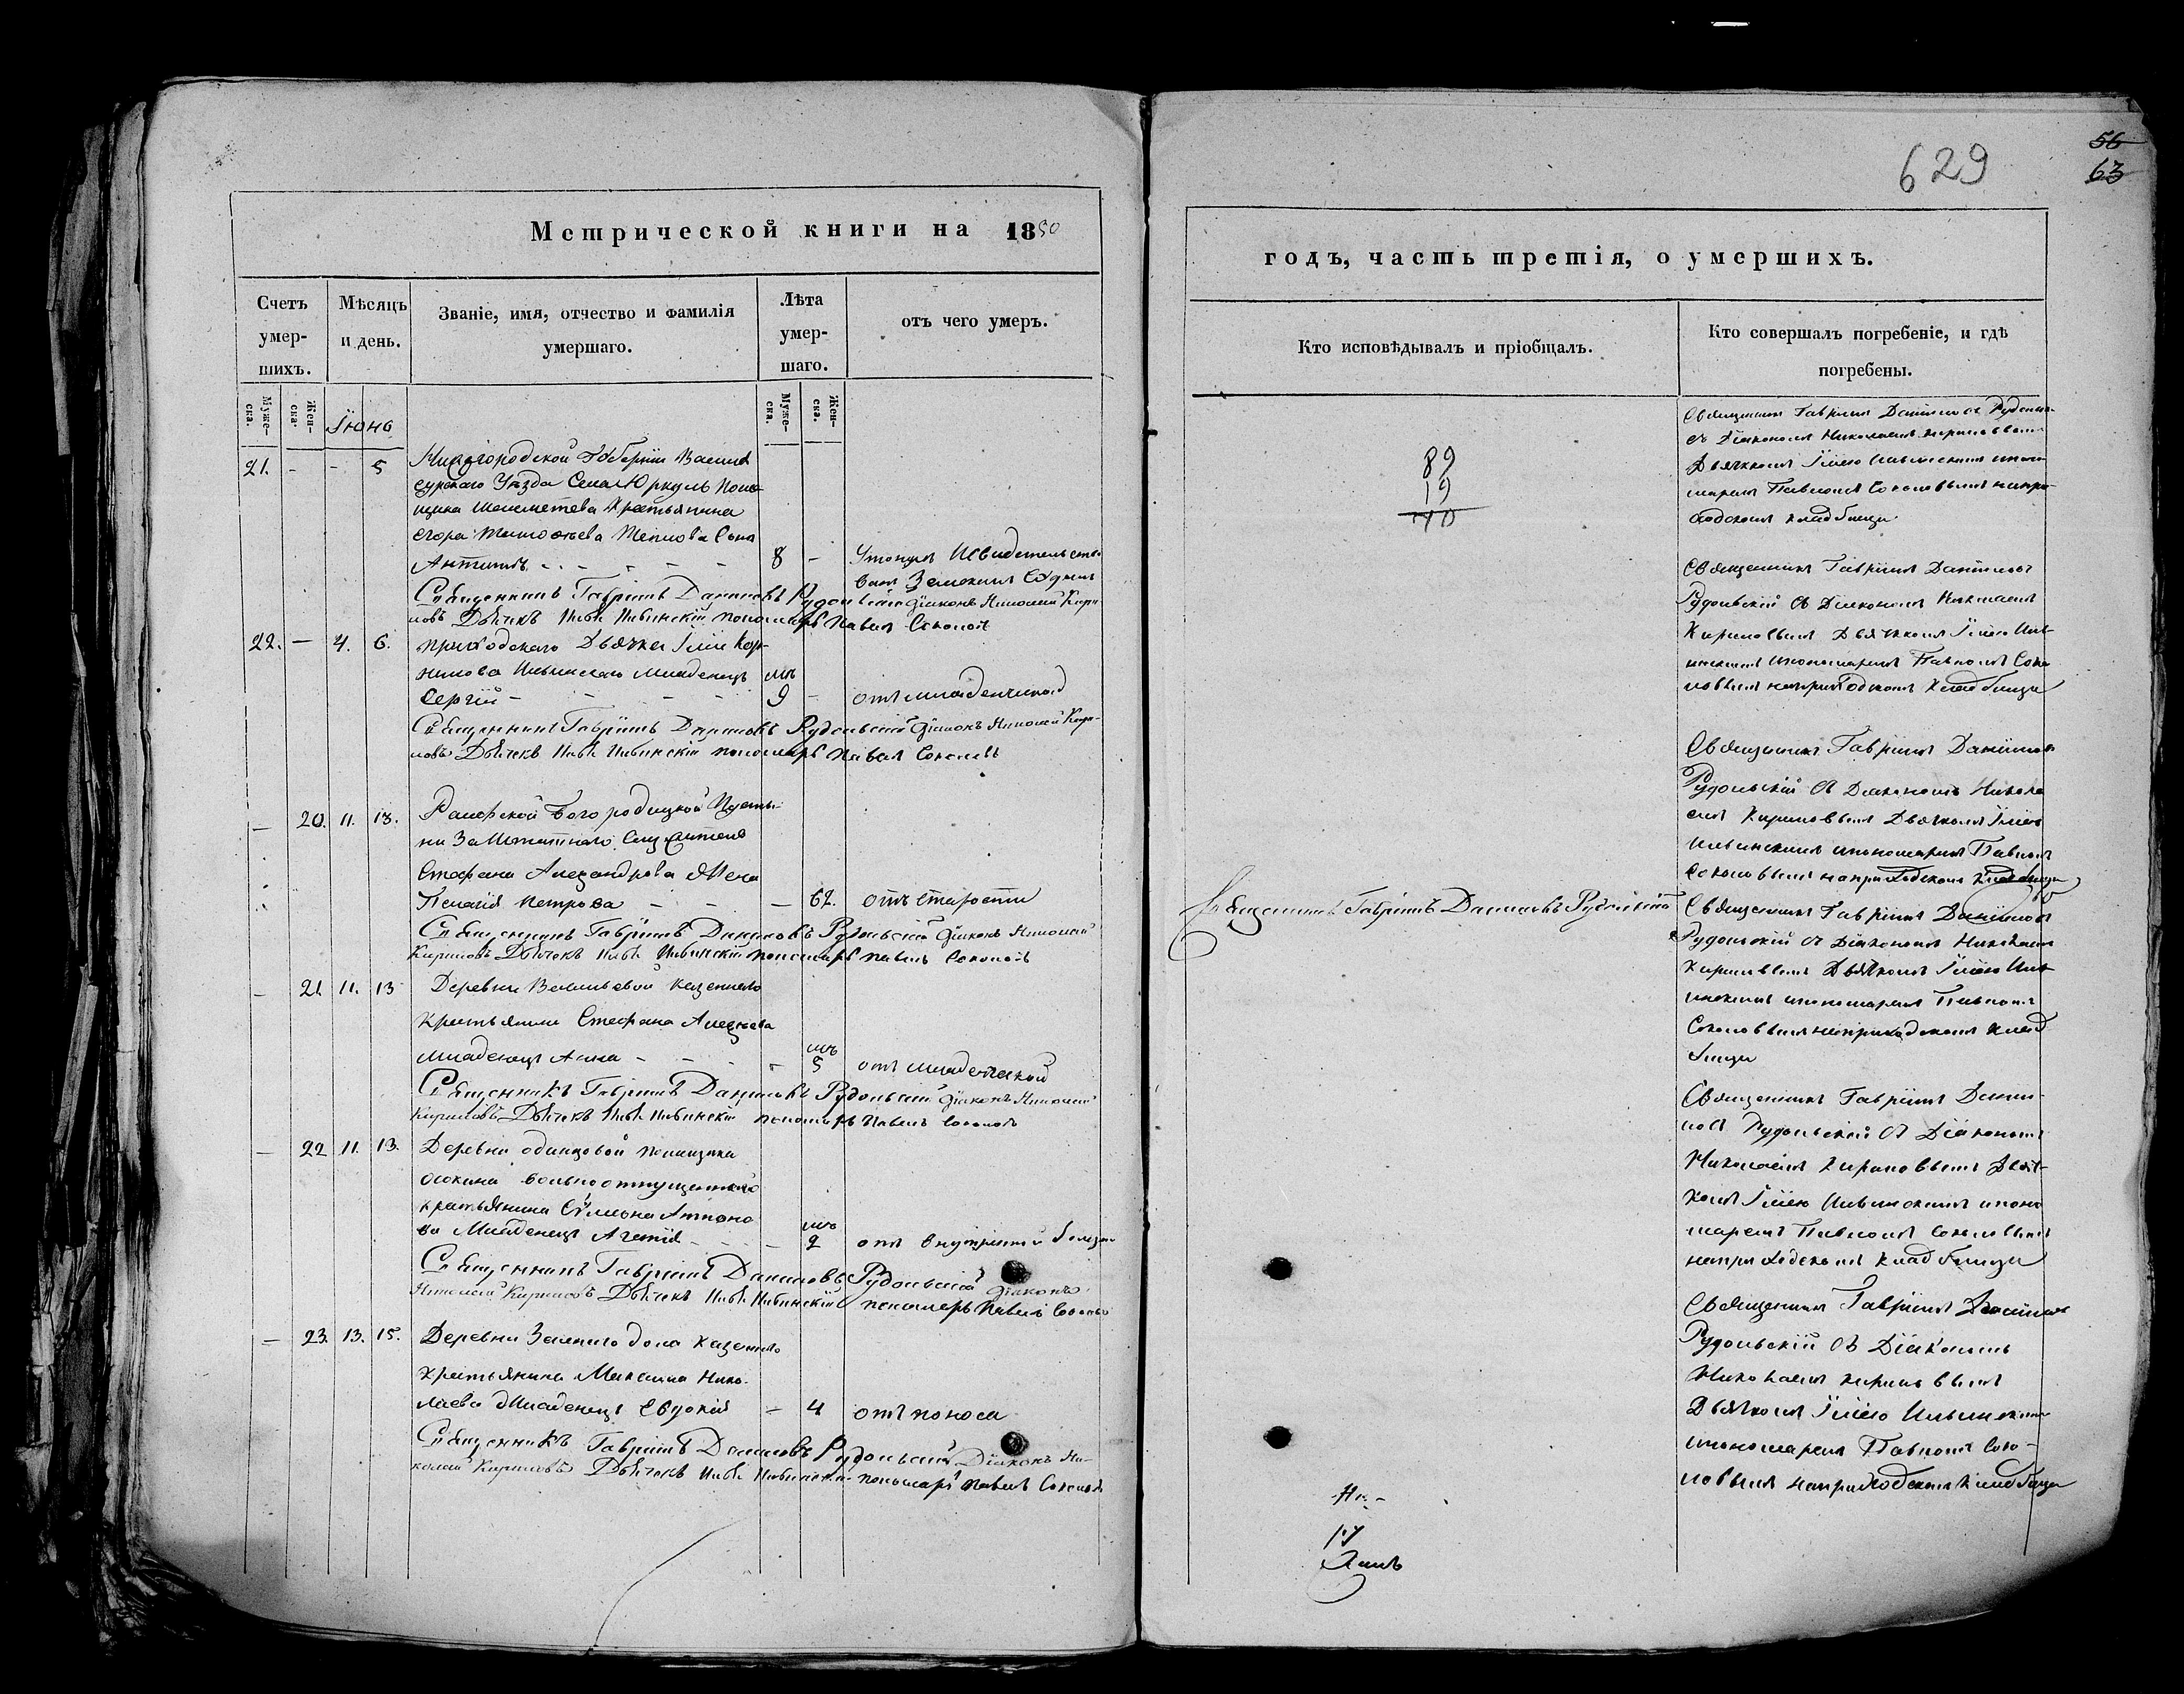 Метрической книги на 1850
Счетъ умер-шихъ.
Мѣсяцъ и день.
Званіе, имя, отчество и фамилія умершаго.
Лѣта умер-шаго.
отъ чего умеръ.
Муже-ска.
Жен-ска.
Іюнь
Муже-ска.
Жен-ска.
21. - - 5
Нижегородской Губерніи Васил
сурскаго Уѣзда Села Юркуль Поме-
щика Шереметева Крестьянина
Егора Сынъ
Антипъ - - - - 8 - Утонулъ Свидетельство
ванъ Земскимъ Судомъ
Священникъ Гавріилъ Даниловъ Рудольскій Діаконъ Николай Кири-
ловъ Дьячекъ Илья Ильинскій пономарь Павелъ Соколовъ
22. - 4. 6.
приходскаго Дьячка Іліи Кор-
нилова Ильинскаго младенецъ мѣ
Сергій - - - - 9 - отъ младенческой
Священникъ Гавріилъ Даниловъ Рудольскій Діаконъ Николай Кири-
ловъ Дьячекъ Илья Ильинскій пономарь Павелъ Соколовъ
- 20. 11. 13.
Раифской Богородицкой Пусты-
ни Заштатнаго Служителя
Стефана Александрова Жена
Пелагія Петрова - - - 62. отъ старости
Священникъ Гавріилъ Даниловъ Рудольскій Діаконъ Николай
Кириловъ Дьячекъ Илья Ильинскій пономарь Павелъ Соколовъ
- 21. 11. 13
Деревни Васильевой казеннаго
крестьянина Стефана Алексеева мѣ
младенецъ Анна - - - - 5 отъ младенческой
Священникъ Гавріилъ Даниловъ Рудольскій Діаконъ Николай
Кириловъ Дьячекъ Илья Ильинскій пономарь Павелъ Соколовъ
- 22 11. 13.
Деревни одинцовой помещика
осокина вольноотпущеннаго
крестьянина Симеона Антоно мѣ
ва Младенецъ - - - 2 отъ внутренней болезни
Священникъ Гавріилъ Даниловъ Рудольскій Діаконъ
Николай Кириловъ Дьячекъ Илья Ильинскій пономарь Павелъ Соколовъ
- 23. 13. 15.
Деревни Зеленаго дола казеннаго
крестьянина Максима Нико-
лаева Младенецъ Евдокія - 4 отъ поноса
Священникъ Гавріилъ Даниловъ Рудольскій Діаконъ Ни-
колай Кириловъ Дьячекъ Илья Ильинскій пономарь Павелъ Соколовъ
56
63
629
годъ, часть третія, о умершихъ.
Кто исповѣдывалъ и пріобщалъ.
Кто совершалъ погребеніе, и гдѣ погребены.
89
19
70
Священникъ Гавріилъ Даниловъ Рудольскій
съ Діакономъ Николаемъ Кириловымъ
Дьячкомъ Іліею Ильинскимъ ипоно
маремъ Павломъ Соколовымъ напри
ходскомъ кладбищи
Священникъ Гавріилъ Даниловъ
Рудольскій съ Діакономъ Николаемъ
Кириловымъ Дьячкомъ Іліею Иль-
инскимъ ипономаремъ Павломъ Соко
ловымъ наприходскомъ кладбищи
Священникъ Гавріилъ Даниловъ
Рудольскій съ Діакономъ Никола
емъ Кириловымъ Дьячкомъ Іліею
Ильинскимъ ипономаремъ Павломъ
Соколовымъ наприходскомъ кладбищи
Священникъ Гавріилъ Даниловъ Рудольскій
Священникъ Гавріилъ Даниловъ
Рудольскій съ Діакономъ Николаемъ
Кириловымъ Дьячкомъ Іліею Иль
инскимъ ипономаремъ Павломъ
Соколовымъ наприходскомъ клад
бищи
Священникъ Гавріилъ Дани-
ловъ Рудольскій съ Діакономъ
Николаемъ Кириловымъ Дьяч-
комъ Іліею Ильинскимъ ипоно
маремъ Павломъ Соколовымъ
наприходскомъ кладбищи
Священникъ Гавріилъ Даниловъ
Рудольскій съ Діакономъ
Николаемъ Кириловымъ
Дьячкомъ Іліею Ильинскимъ
ипономаремъ Павломъ Соко-
ловымъ наприходскомъ кладбищи